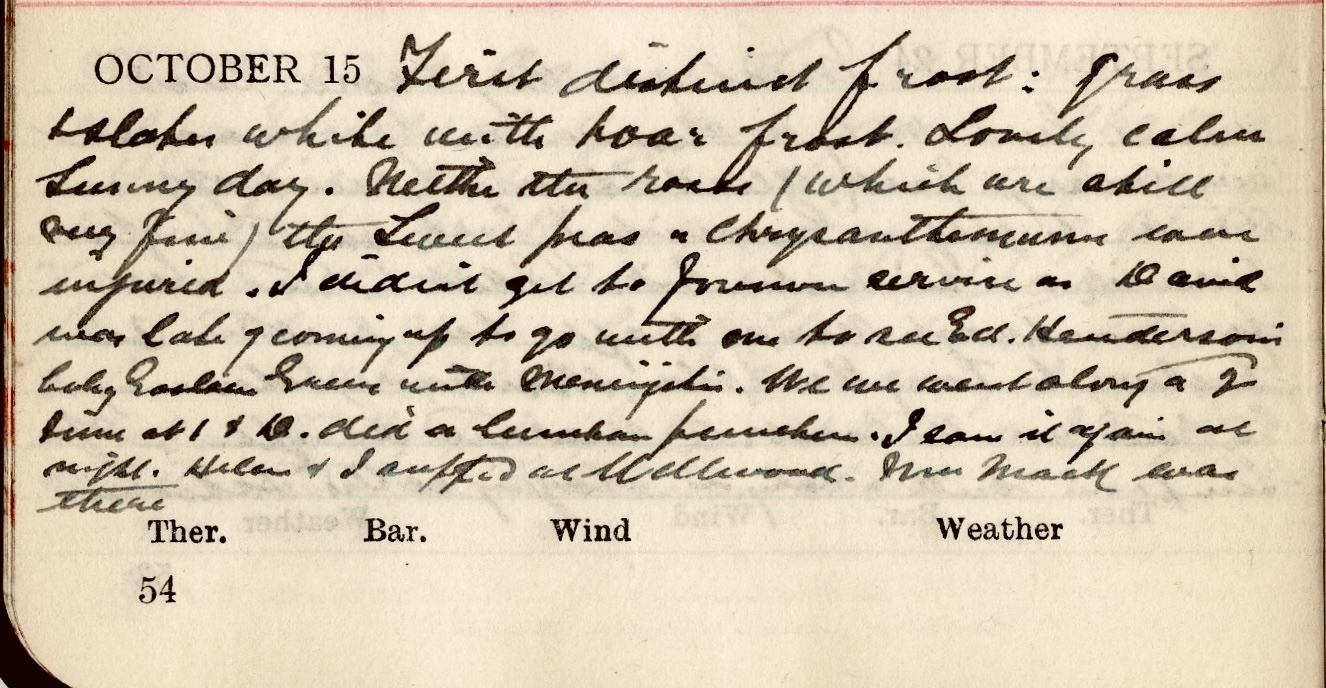 OCTOBER 15 First distinct frost: grass
& slates white with hoar frost. Lovely calm
sunny day. Neither the roses (which are still
very fine) the Sweet peas or Chrysanthemums were
injured. I didn't get to forenoon service as David
was late of coming up to go with me to see Ed. Henderson's
baby Green with Meningitis. We went along a 2
time at 1 & D. did a lumbar puncture. I saw it again at
night. Helen & I supped at Wellwood. Mrs Mack was
there
Ther. Bar. Wind Weather
54